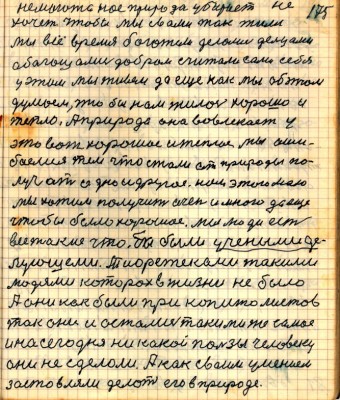 175
немогота ное природа убирает не
хочет чтобы мы с вами так жили
мы всё время богатим делами делцами
а богощами добром считали сами себя
у этом мы живем да еще как мы об этом
думаем, что бы нам жилось хорошо и
тепло, А природа она вовлекает у
это вот хорошое и теплое, мы оши-
баемся тем что стали от природы по-
лучать одно и другое. нам этого мало
мы хотим получит очен и много да еще
чтобы было хорошое. мы люди есть
все такие что бы были учеными де-
лующеми. Теоретеками такими
людями которох в жизни не было
А они как были при копитолистов
так они и осталис такими то самое
и на сегодня никакой ползы человеку
они не сделоли. А как своим умением
застовляли делоть его в природе.